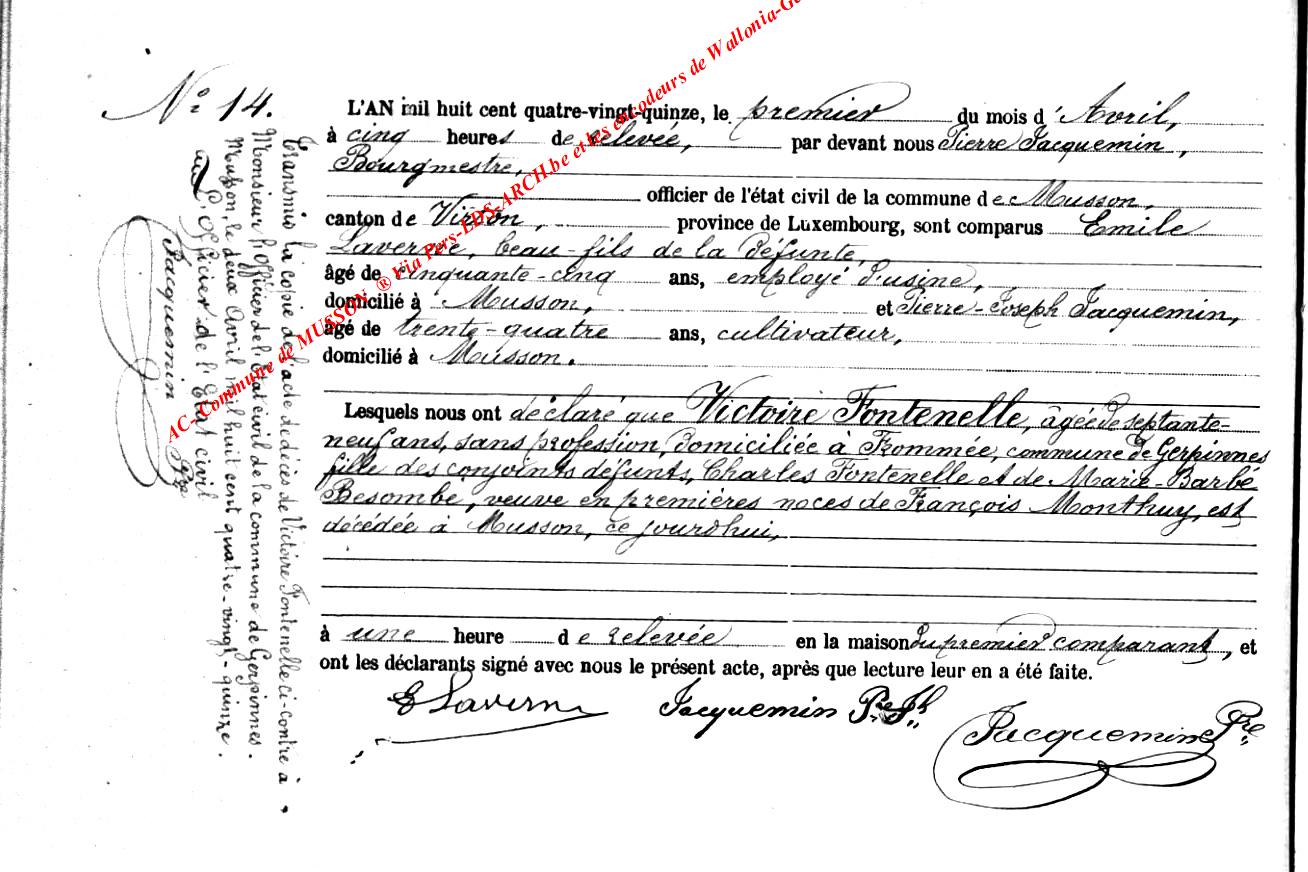 N° 14.
L'AN mil huit cent quatre-vingt-quinze, le premier du mois d'Avril,
à cinq heures de relevée, par devant nous Pierre Jacquemin,
Bourgmestre,
officier de l'état civil de la commune de Musson,
canton de Virton, province de Luxembourg, sont comparus Emile
Laverne, beau-fils de la défunte,
âgé de cinquante-cinq ans, employé d'usine,
domicilié à Musson, et Pierre-Joseph Jacquemin,
âgé de trente-quatre ans, cultivateur,
domicilié à Musson.
Lesquels nous ont déclaré que Victoire Fontenelle, âgée de septante-
neuf ans, sans profession, domiciliée à Frommée, commune de Gerpinnes
fille des conjoints défunts, Charles Fontenelle et de Marie-Barbe
Besombe, veuve en premières noces de François Monthuy, est
décédée à Musson, ce jourd'hui,
à une heure de relevée en la maison du premier comparant, et
ont les déclarants signé avec nous le présent acte, après que lecture leur en a été faite.
E Laverne Jacquemin Pre Jh
Jacquemin Pre
Transmis la copie de l'acte de décès de Victoire Fontenelle ci-contre à
Monsieur l'Officier de l'Etat civil de la commune de Gerpinnes.
Musson, le deux Avril mil huit cent quatre-vingt-quinze.
L'Officier de l'Etat civil
Jacquemin Pre
AC-Commune de MUSSON ® Via Pers-EDS-ARCH.be et les encodeurs de Wallonia-G